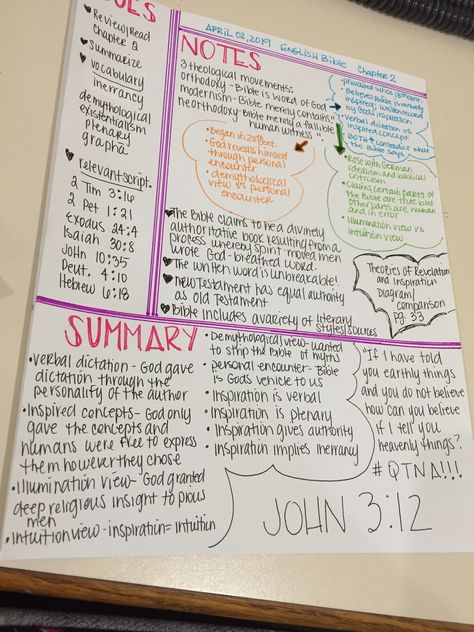 UES
• Review/Read
Chapter 2
♥ summarize
♥ vocabulary
inerrancy
demythological
existentialism
plenary
grapha
♥ relevant script.
2 Tim 3:16
2 Pet 1:21
Exodus 24:4
Isaiah 30:8
John 10:35
Deut. 4:10
Hebrew 6:19
APRIL 02, 2019 ENGLISH BIBLE Chapter 2
NOTES
3 theological movements:
orthodoxy - Bible is word of God
modernism - Bible merely contains "
neorthodoxy - Bible merely a fallible
human witness "
• Began in 20th cent.
• God reveals himself
through personal
encounter
• demythological
view vs personal
encounter
• prevailed since 18th cent.
• Believes Bible is verbally
inspired; written record
by God's inspiration
• verbal dictation vs
inspired concept
• Both contradict what
the Bible says
• Rose with German
idealism and biblical
criticism
• Claims certain parts of
the Bible are true but
other parts are human
and in error
• Illumination view vs
Intuition view
♥ The Bible claims to be a divinely
authoritative book resulting from a
process whereby spirit-moved men
wrote God-breathed word.
♥ The written word is unbreakable!
♥ New Testament has equal authority
as old Testament
♥ Bible includes a variety of literary
styles/sources
Theories of Revelation
and Inspiration
Diagram/
comparison
pg. 33
SUMMARY
• verbal dictation - God gave
dictation through the
personality of the author
• Inspired concepts - God only
gave the concepts and
humans were free to express
them however they chose
• Illumination view - God granted
deep religious insight to pious
men
• Intuition view - inspiration = intuition
• Demythological view - wanted
to strip the Bible of myths
• personal encounter - Bible
is Gods vehicle to us
• Inspiration is verbal
• Inspiration is plenary
• Inspiration gives authority
• Inspiration implies inerrancy
"If I have told
you earthly things
and you do not believe
how can you believe
if I tell you
heavenly things?
# QTNA!!!
JOHN 3:12